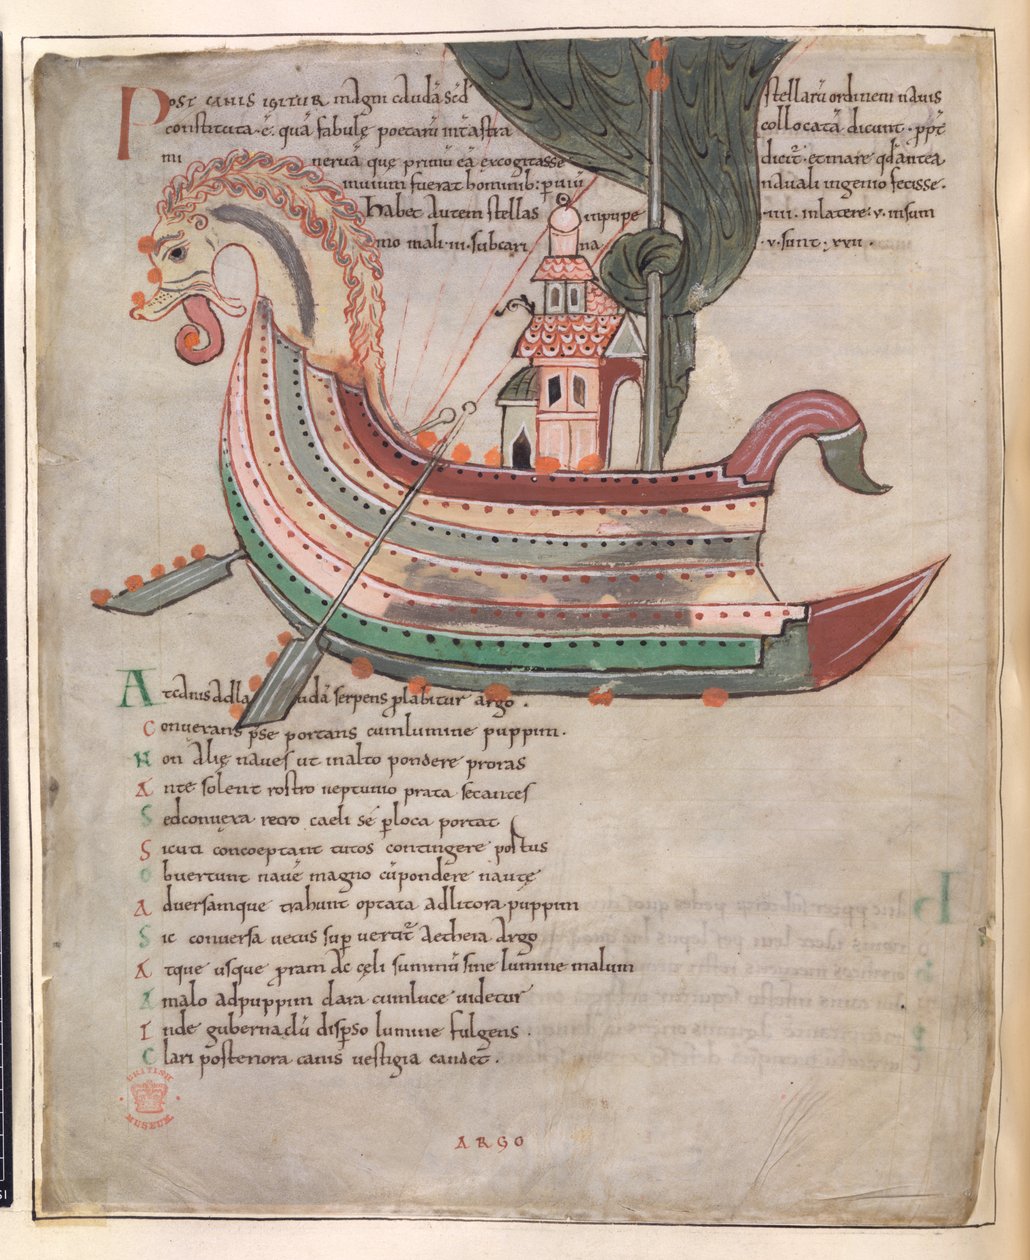 Post canis igitur magni caudā sēd stellarū ordinem navis
constituta · ē · quā fabulę poetarū int̄ astra collocatā dicunt · ppt̄
mi nervā quę primū eā excogitasse dicit̄ · et mare qd̄ antea
invium fuerat hominib: p̱viū navali ingenio fecisse ·
Habet autem stellas in puppe · iiii · in latere · v · in sum
mo mali · iii · sub cari na · v · sunt : xxii ·
At canis ad la udā serpens p̱labitur argo ·
Conversans p̱se portans cum lumine puppim ·
Non alię naves ut in alto pondere proras
Ante solent rostro neptunio prata secantes
Sed convexa retro caeli sē p̱ loca portat
Sicuti concoeptant tutos contingere portus
Obvertunt navē magno cū pondere nautę
Adversamque trahunt optata ad litora puppim
Sic conversa vetus sup̱ vertit̄ aetheia Argo
Atque usque p̱ram ac cęli summū sine lumine malum
A malo ad puppim clara cum luce videtur
Inde gubernaclū disp̱so lumine fulgens ·
Clari posteriora canis vestigia candet ·
BRITISH MUSEUM
ARGO